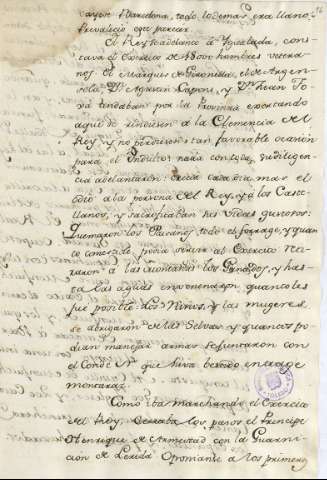 cayese Barcelona, todo lo demas era llano
Privilegio que perecer.
El Rey se adelanto à Igualada, cons-
tava el Exercito de 18000 hombres vetera-
nos. El Marques de Gironella, el de Argen-
sola, Dn. Agustin Copons, y Dn. Juan
tentaban por la Provincia exortando
à que se rindiesen à la Clemencia del
Rey y no perdiesen tan favorable ocasion
para el Indulto: nada con toda su diligen-
cia adelantaron: crecia cada dia mas el
odio à la persona del Rey, y à los Caste-
llanos, y sacrificaban sus Vidas gustosos:
Quemaron los Paisanos todo el forrage, y quan-
to comerado, podia servir al Exercito reti-
raron à las montañas los Ganados, y has-
ta las aguas envenenaron quanto les
fue posible. Los Niños, y las mugeres
se abrigaron de las Selvas, y quantos po-
dian manejar armas se juntaron con
el Conde
montaraz.
Como iba marchando el Exercito
del Rey, Cerraba los pasos el Principe
Henrique de Armestad con la Guarni-
cion de Lerida. Oponianse à los primeros